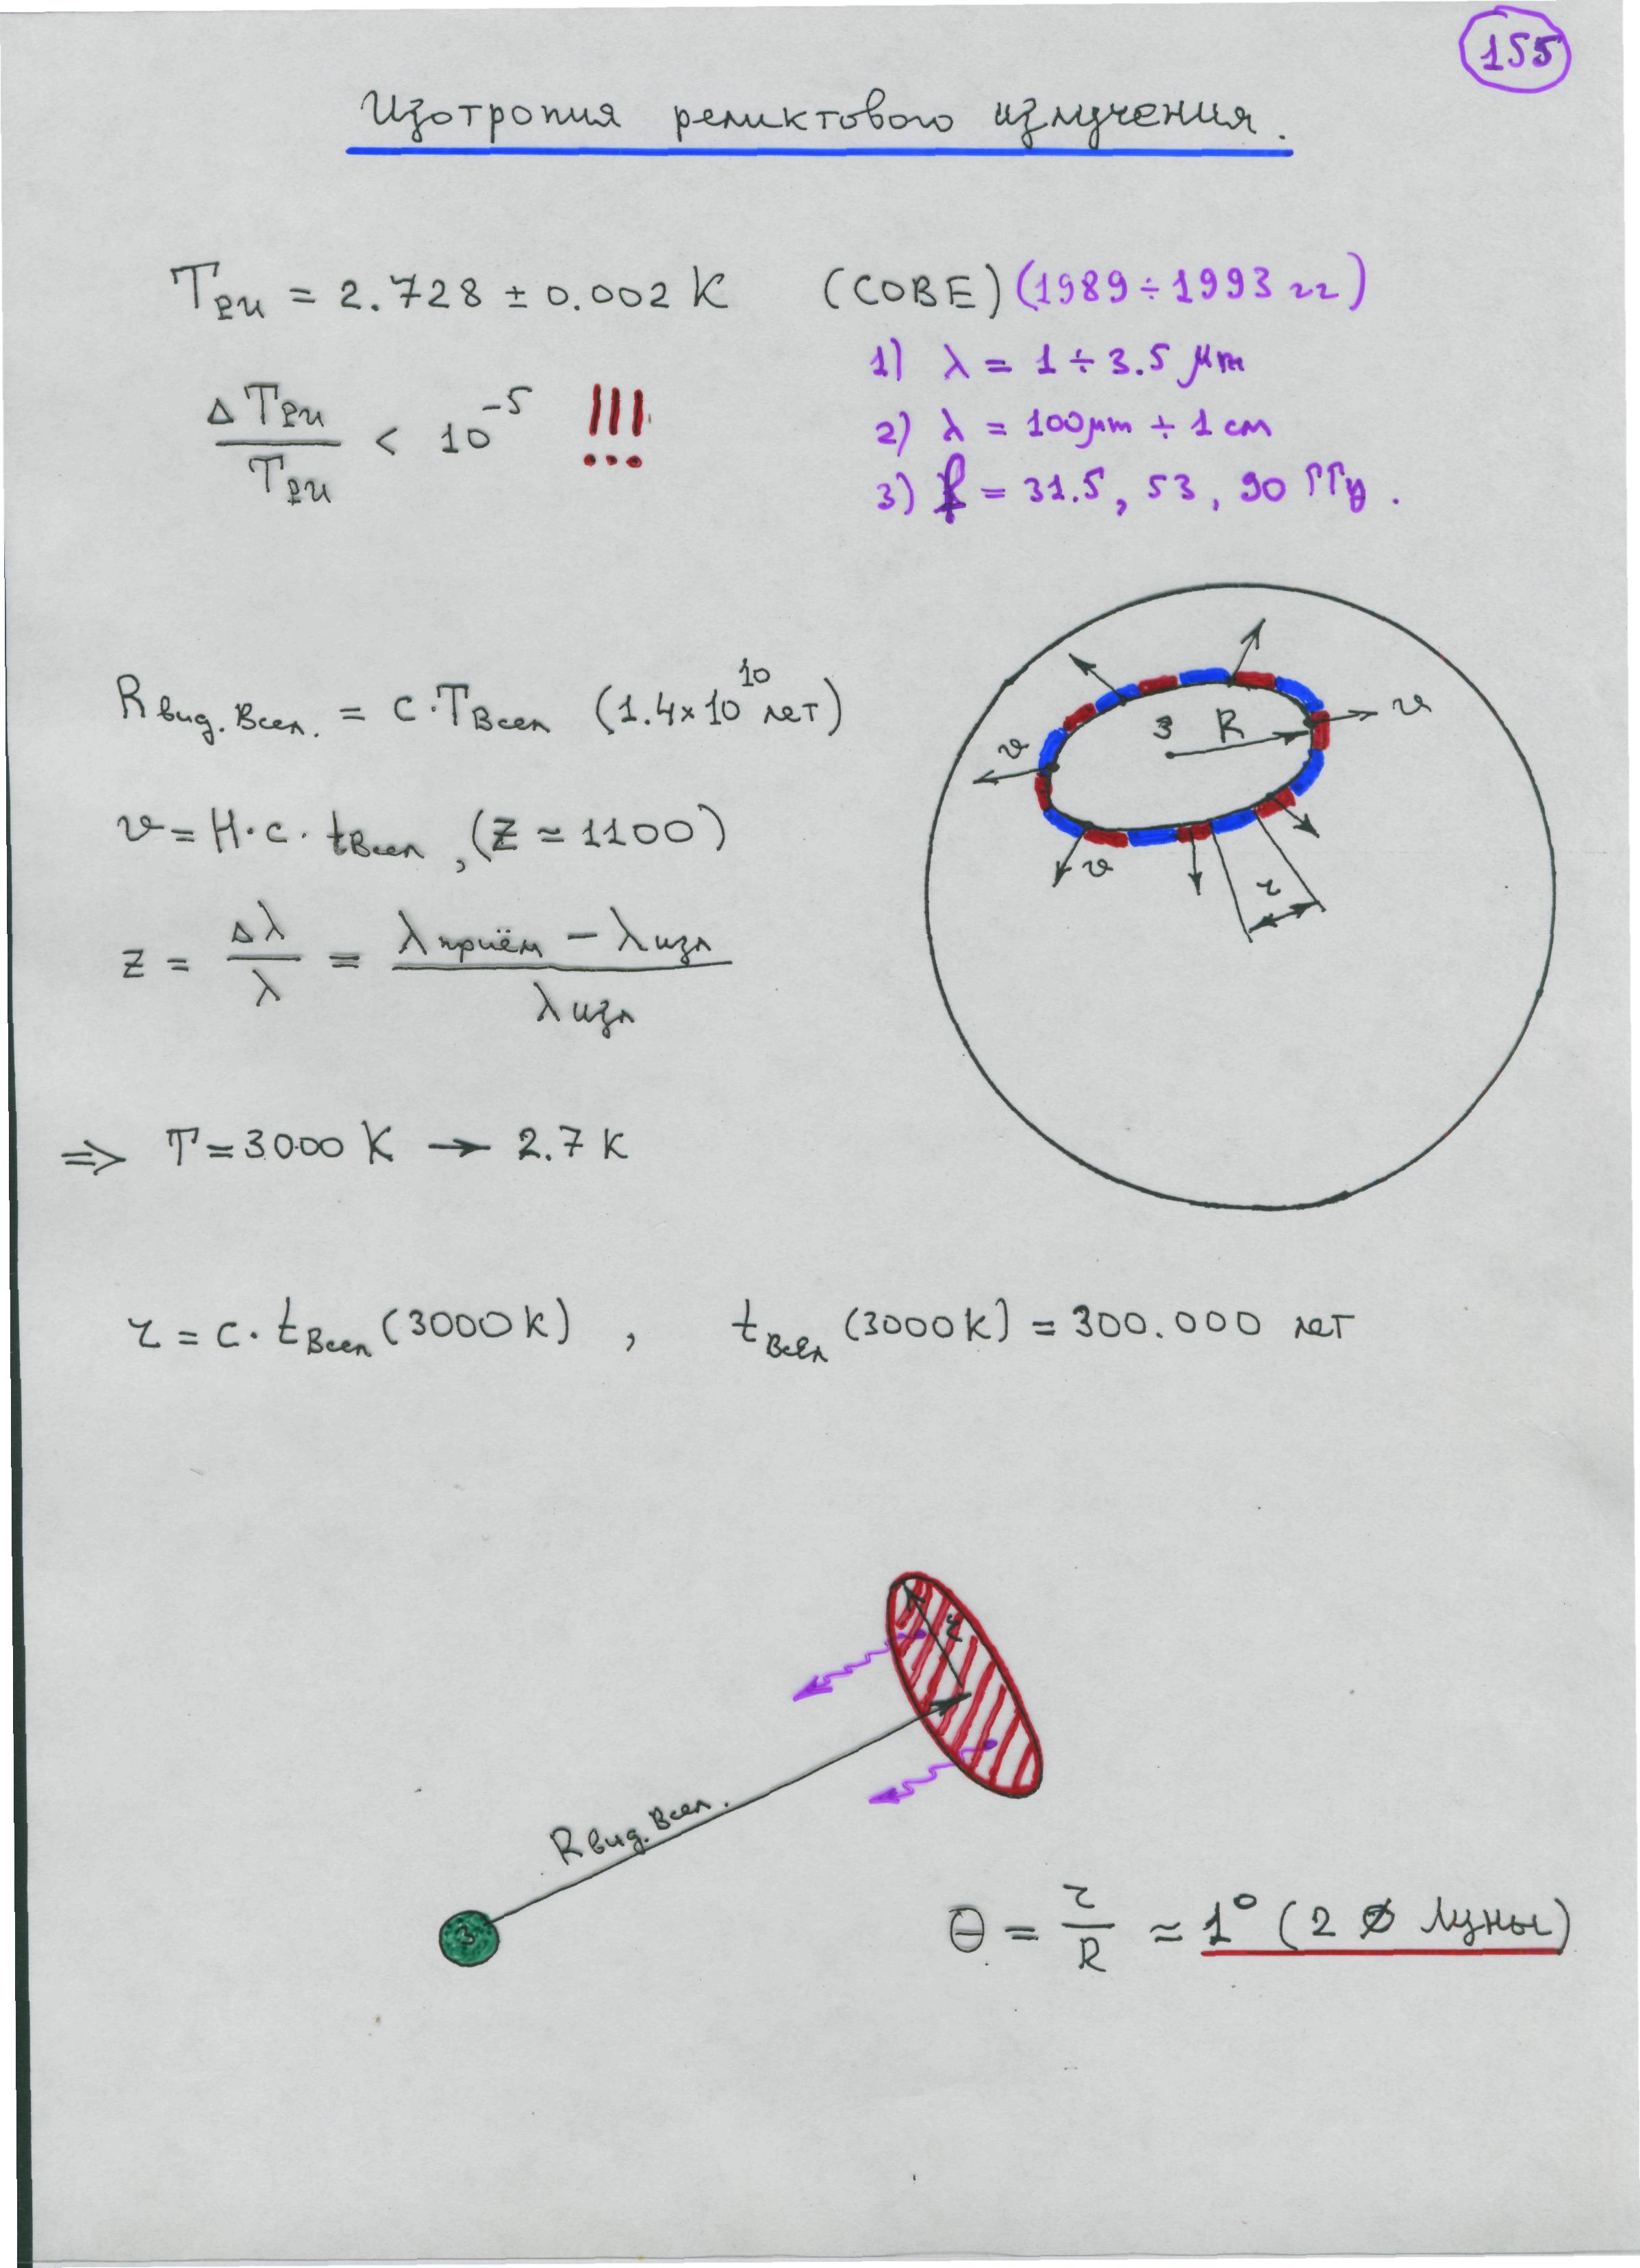 155
Изотропия реликтового излучения.
Tри = 2.728 ± 0.002 K (COBE) (1989÷1993 гг)
1) λ = 1 ÷ 3.5 μm
ΔTри / Tри < 10^-5 !!!
2) λ = 100μm ÷ 1 cm
3) f = 31.5, 53, 90 ГГц.
Rвид. Всел. = c·TВсел (1.4×10^10 лет)
v = H·c·tВсел, (Z ≃ 1100)
z = Δλ / λ = (λприём − λизл) / λизл
З R v
v
v
r
⇒ T = 3000 K → 2.7 K
r = c·tВсел (3000K), tВсел (3000K) = 300.000 лет
r
Rвид. Всел.
З
Θ = r / R ≈ 1° (2 ∅ Луны)